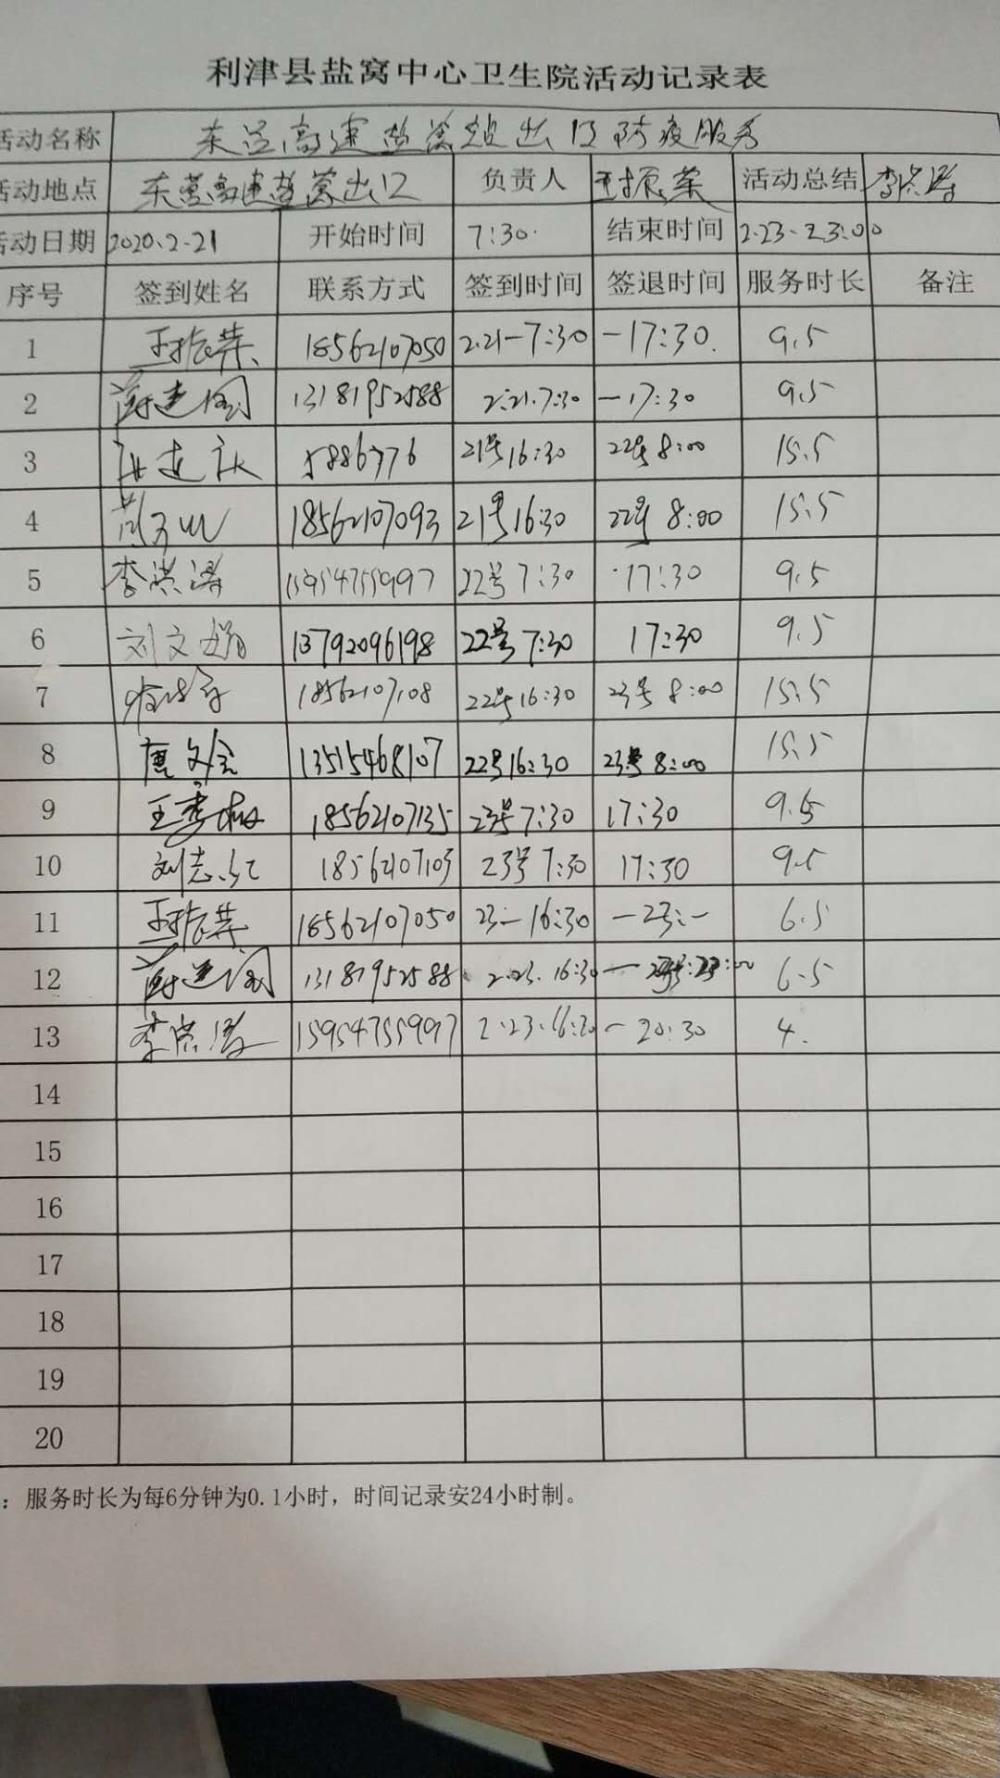 利津县盐窝中心卫生院活动记录表
活动名称 东营高速盐窝站出口防疫服务
活动地点 东营高速盐窝出口 负责人 王振荣 活动总结 李洪涛
活动日期 2020.2.21 开始时间 7:30. 结束时间 2.23.23:00
序号 签到姓名 联系方式 签到时间 签退时间 服务时长 备注
1 王振荣 18562107050 2.21-7:30 -17:30. 9.5
2 13181952588 2.21.7:30 -17:30 9.5
3 5886776 21号16:30 22号8:00 15.5
4 18562107093 21号16:30 22号 8:00 15.5
5 李洪涛 15954755997 22号7:30 17:30 9.5
6 刘文娟 13792096198 22号7:30 17:30 9.5
7 18562107108 22号16:30 23号 8:00 15.5
8 13515468107 22号16:30 23号8:00 15.5
9 18562107135 23号7:30 17:30 9.5
10 刘志红 18562107103 23号7:30 17:30 9.5
11 王振荣 18562107050 23-16:30 -23:- 6.5
12 13181952588 2.23.16:30 6.5
13 李洪涛 15954755997 2.23.16:30 -20:30 4.
14
15
16
17
18
19
20
：服务时长为每6分钟为0.1小时，时间记录安24小时制。